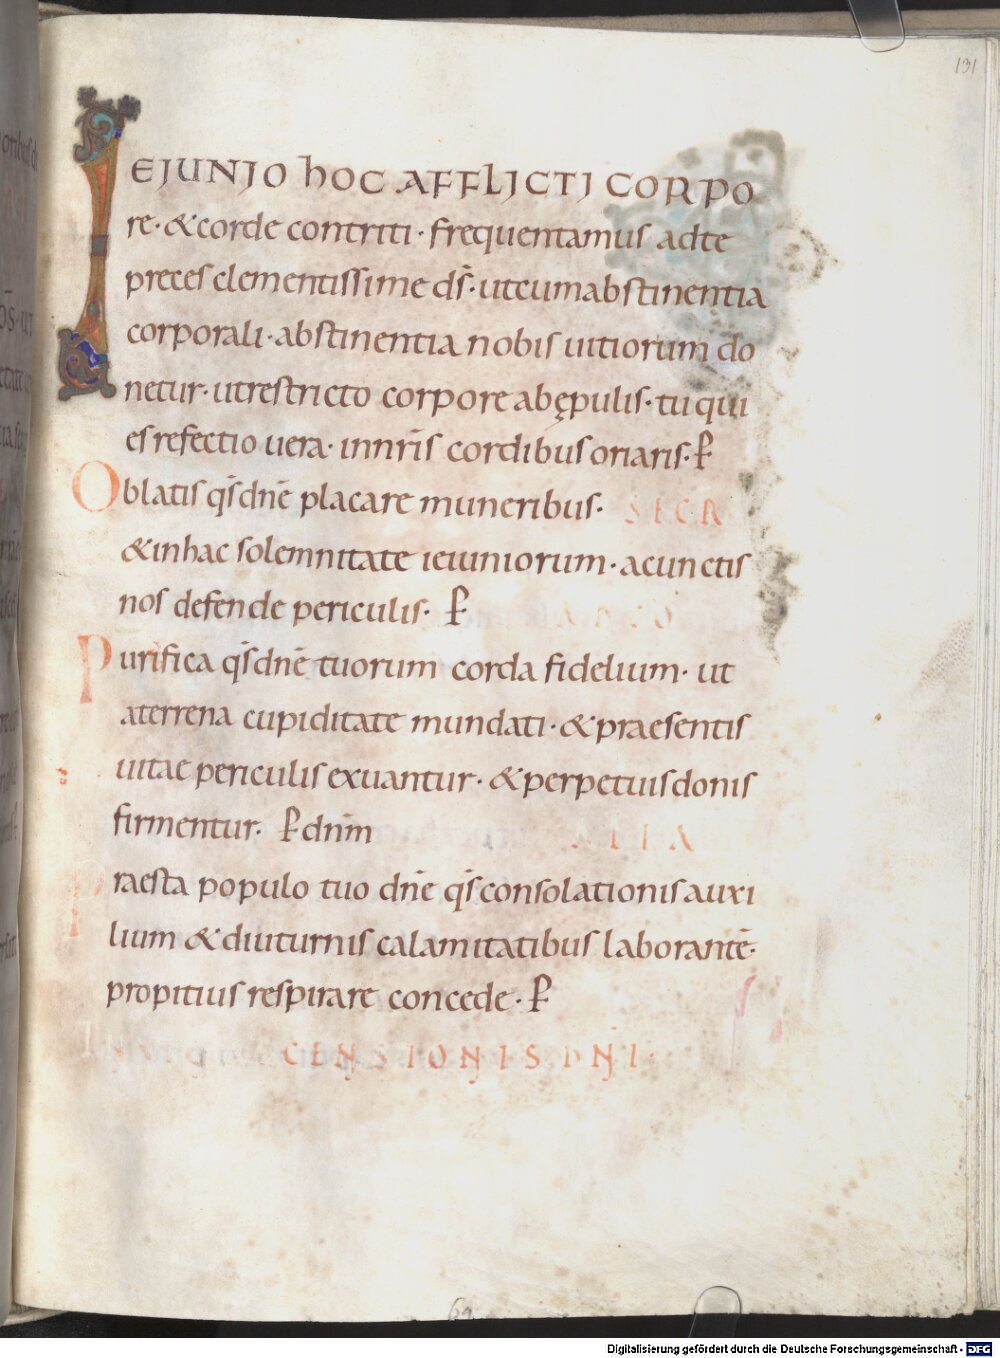 131
IEJUNIO hOC AFFLICTI CORPO
re· &corde contriti· frequentamus adte
preces clementissime dš· utcumabstinentia
corporali· abstinentia nobis uitiorum do
netur· utrestricto corpore abępulis· tu qui
es refectio uera· innrīs cordibus oriaris· P̄
Oblatis qš dnē placare muneribus· SECR
&inhac solemnitate ieiuniorum· acunctis
nos defende periculis· P̄
Purifica qš dnē tuorum corda fidelium· ut
aterrena cupiditate mundati· &praesentis
uitae periculis exuantur· &perpetuis donis
firmentur· P̄ dnm̄
ALIA
Praesta populo tuo dnē qš consolationis auxi
lium &diuturnis calamitatibus laborantē·
propitius respirare concede· P̄
CENSIONIS DNI·
Digitalisierung gefördert durch die Deutsche Forschungsgemeinschaft - DFG